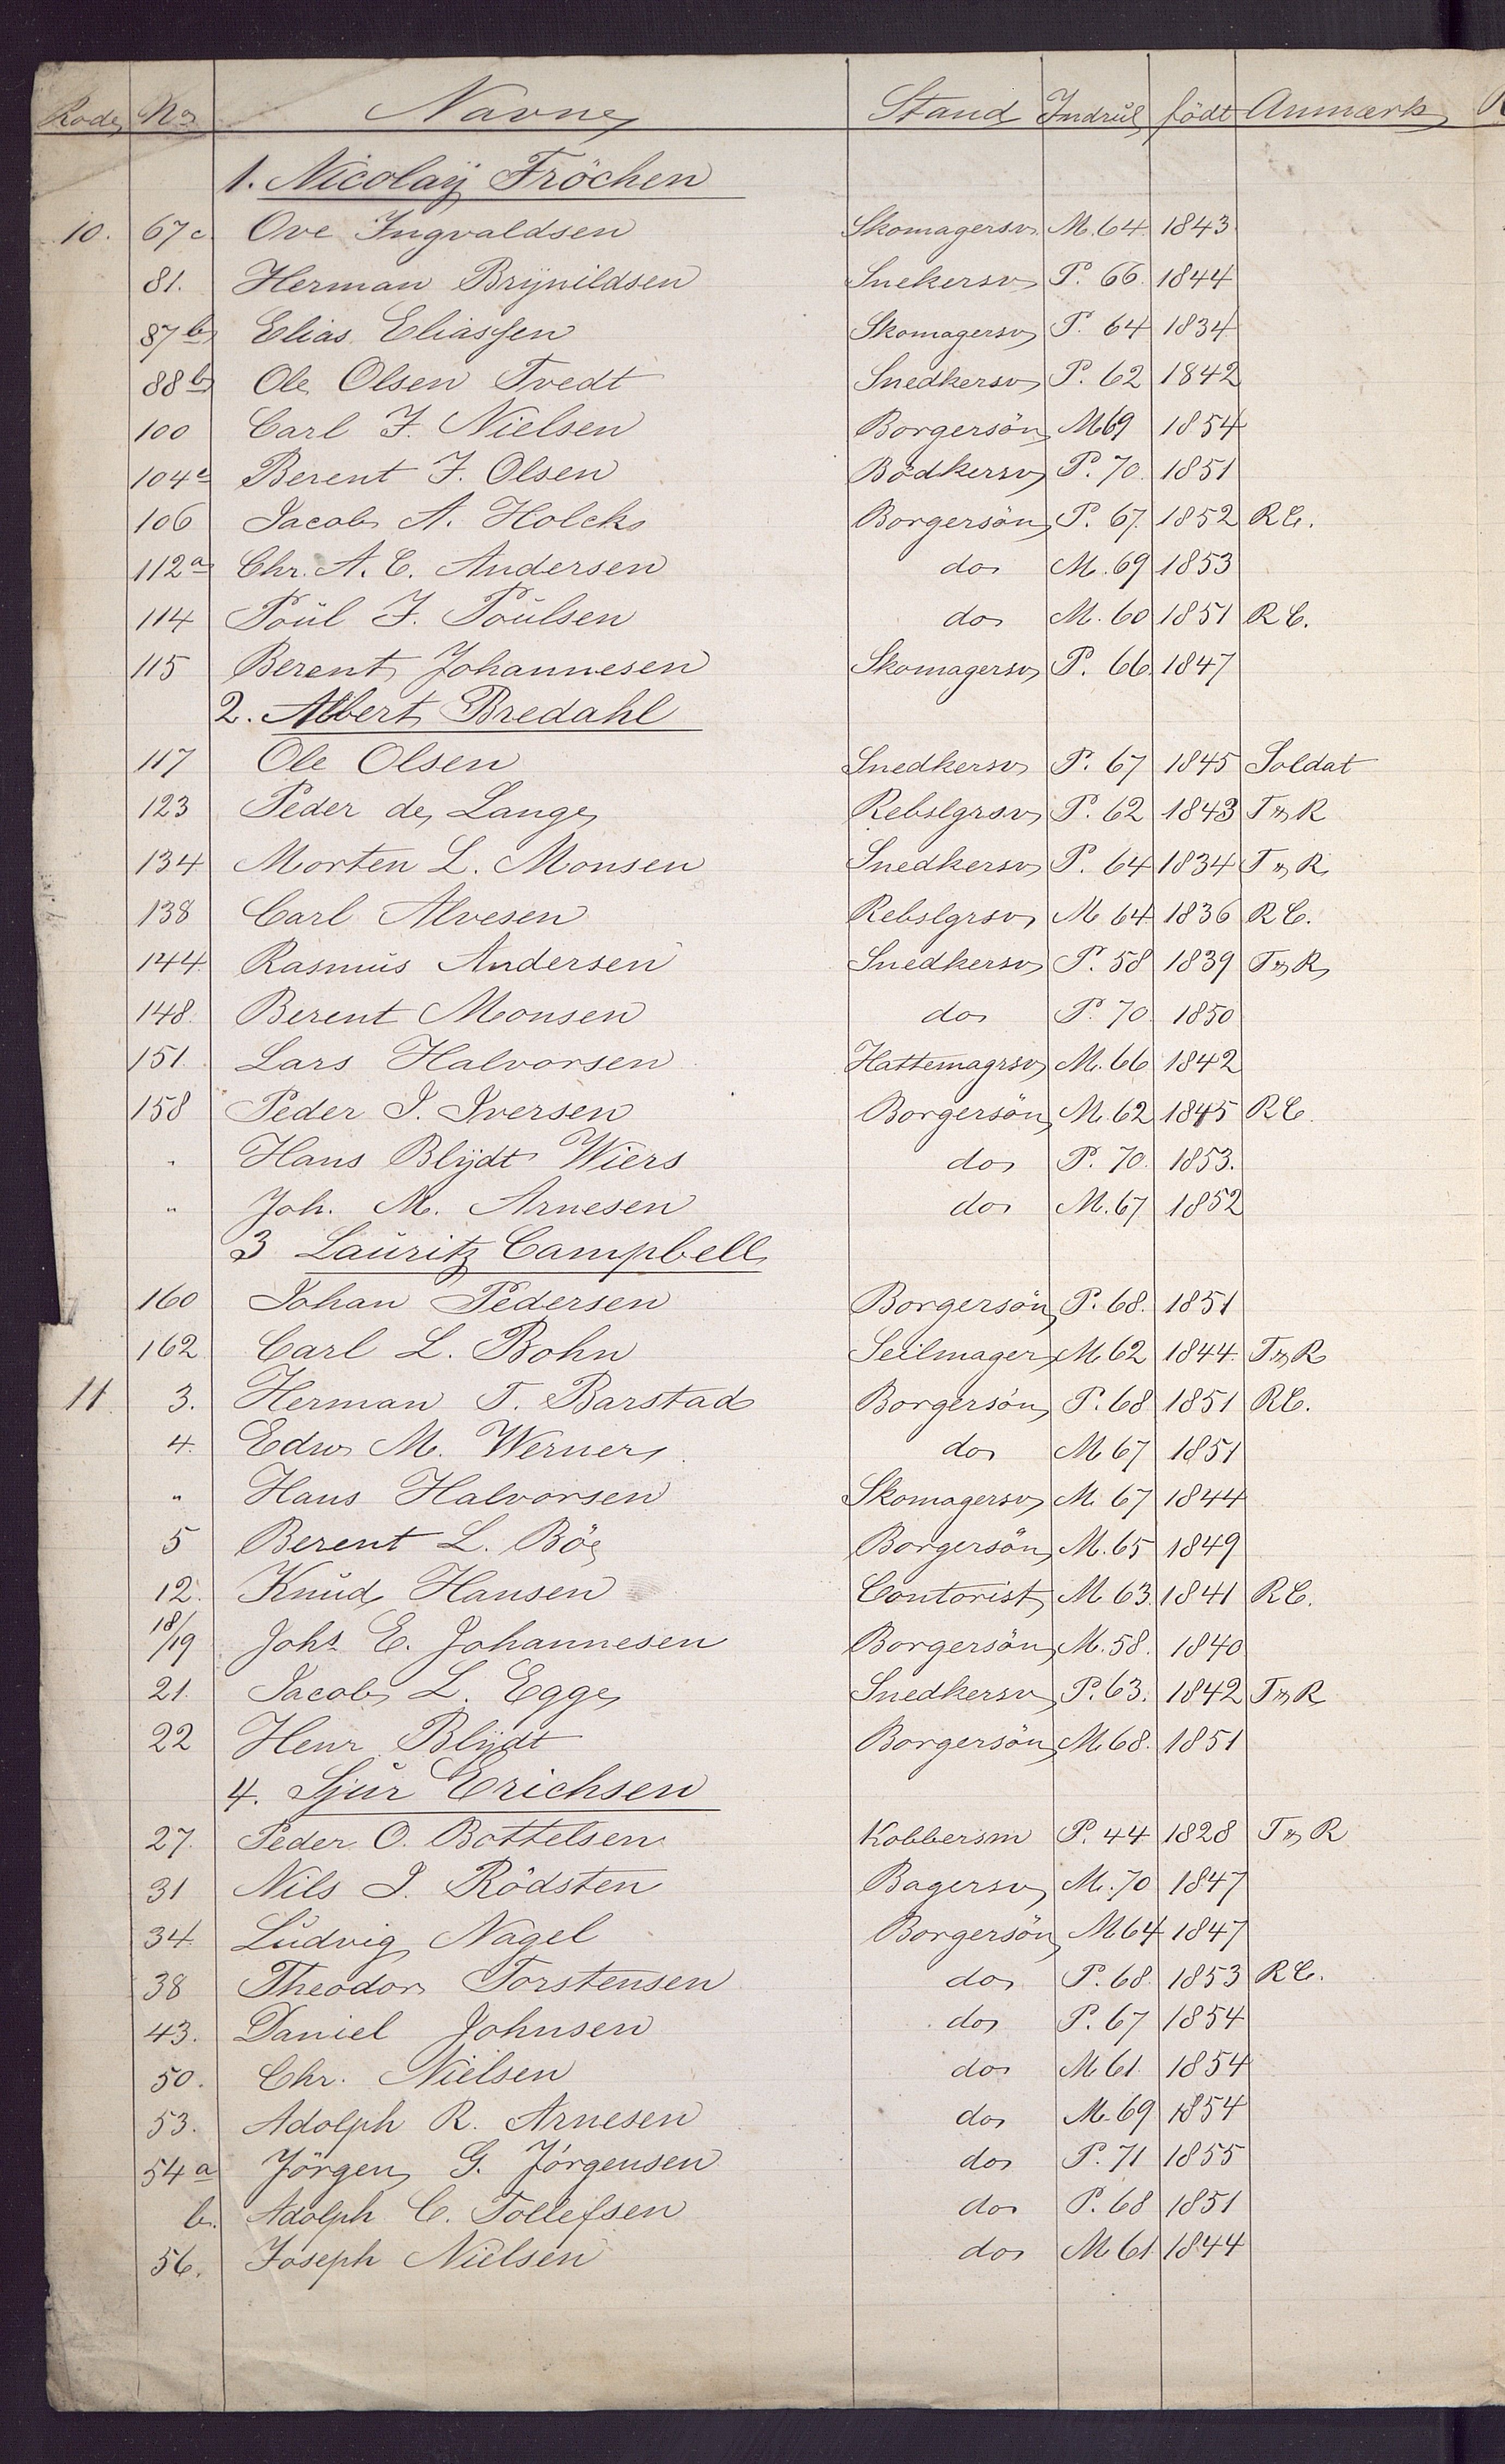 Rode No Navne Stand Indrul. födt Anmærk
1. Nicolaÿ Fröchen
10. 67c. Ove Ingvaldsen Skomagersv. M. 64. 1843
81. Herman Brÿnildsen Snekersv P. 66. 1844
87b Elias Eliassen Skomagersv P. 64 1834
88b Ole Olsen Tvedt Snedkersv P. 62 1842
100 Carl J. Nielsen Borgersön M69 1854
104c Berent J. Olsen Bödkersv P. 70. 1851
106 Jacob A. Holck Borgersön P. 67. 1852 RC.
112a Chr. A. C. Andersen do M. 69 1853
114 Poŭl J. Poŭlsen do M. 60 1851 RC.
115 Berent Johannesen Skomagersv P. 66. 1847
2. Albert Bredahl
117 Ole Olsen Snedkersv P. 67 1845 Soldat
123 Peder de Lange Rebslgrsv P. 62 1843 T R
134 Morten L. Monsen Snedkersv P. 64 1834 T R
138 Carl Alvesen Rebslgrsv M 64 1836 RC.
144. Rasmŭs Andersen Snedkersv P. 58 1839 T R
148. Berent Monsen do P. 70. 1850
151. Lars Halvorsen Hattemagrsv M. 66 1842
158 Peder I. Iversen Borgersön M. 62 1845 RC.
" Hans Blÿdt Wiers do P. 70. 1853.
" Joh. M. Arnesen do M. 67 1852
3 Laŭritz Campbell
160 Johan Pedersen Borgersön P. 68. 1851
162 Carl L. Bohn Seilmager M 62 1844. T R
11 3. Herman T. Barstad Borgersön P. 68 1851 RC.
4. Edw M. Werner do M 67 1851
" Hans Halvorsen Skomagersv M. 67 1844
5 Berent L. Böe Borgersön M. 65 1849
12. Knŭd Hansen Contorist M. 63. 1841 RC.
18/19 Johs E. Johannesen Borgersön M. 58. 1840
21. Jacob L. Egge Snedkersv P. 63. 1842 T R
22 Henr Blÿdt Borgersön M 68. 1851
4. Sjŭr Erichsen
27. Peder O. Bottelsen Kobbersm P. 44 1828 T R
31 Nils I. Rödsten Bagersv M. 70 1847
34. Lŭdvig Nagel Borgersön M 64 1847
38 Theodor Torstensen do P. 68. 1853 RC.
43. Daniel Johnsen do P. 67 1854
50. Chr. Nielsen do M 61. 1854
53. Adolph R. Arnesen do M. 69 1854
54a Jörgen G. Jörgensen do P. 71 1855
b. Adolph C. Tollefsen do P. 68 1851
56. Joseph Nielsen do M 61. 1844